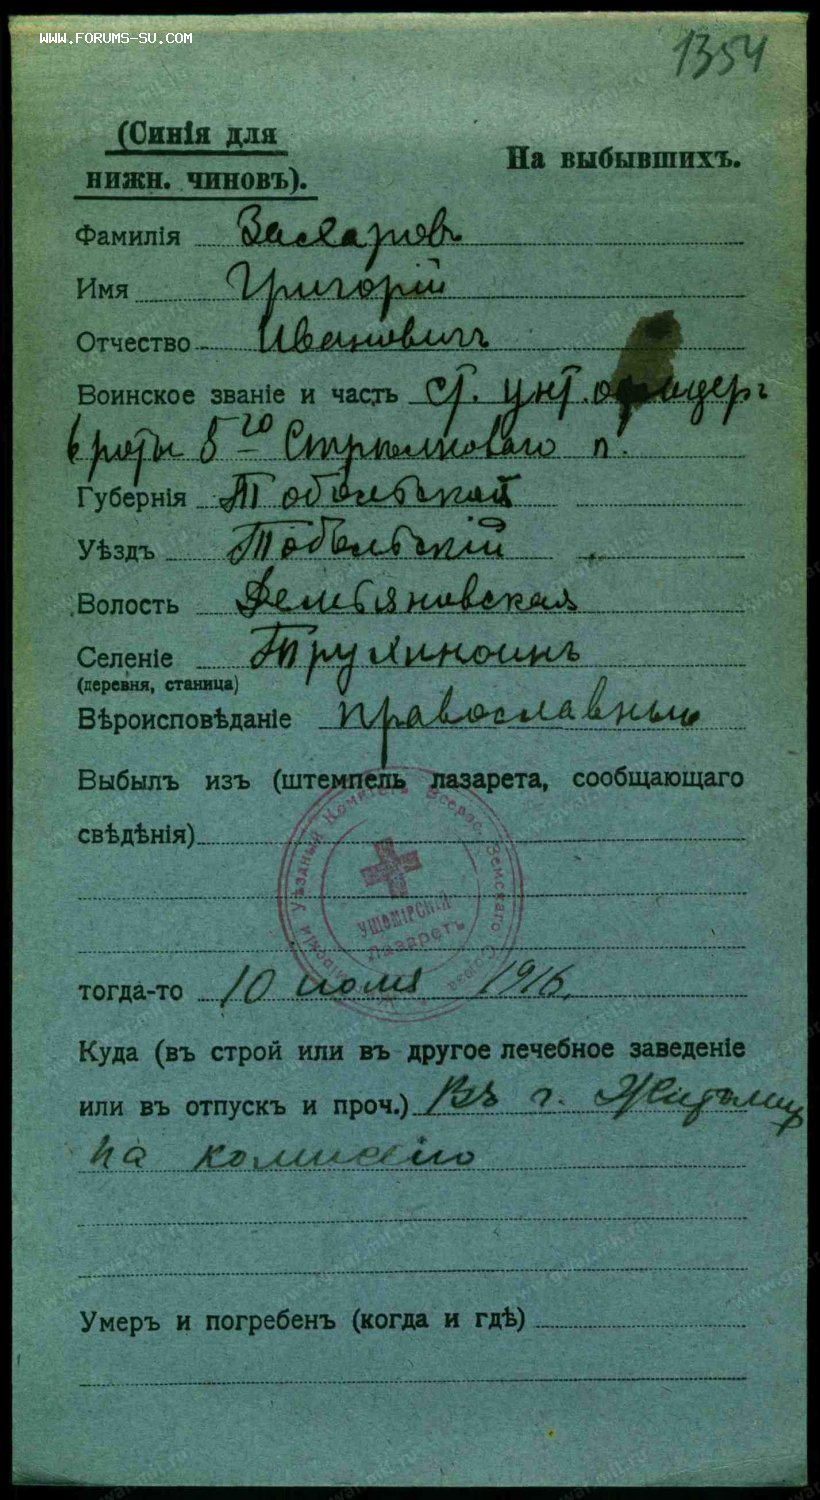 WWW.FORUMS-SU.COM
1354
(Синія для
нижн. чиновъ).
На выбывшихъ.
Фамилія Захаровъ
Имя Григорій
Отчество Ивановичъ
Воинское званіе и часть ст. унт. офицеръ
6 роты 5го Стрѣлковаго п.
Губернія Тобольской
Уѣздъ Тобольскій
Волость Демьяновская
Селеніе
(деревня, станица)
Вѣроисповѣданіе православный
Выбылъ изъ (штемпель лазарета, сообщающаго
свѣдѣнія)
Уѣздный Комитетъ Всерос. Земскаго Союза
Ушомірскій
Лазаретъ
тогда-то 10 июля 1916.
Куда (въ строй или въ другое лечебное заведеніе
или въ отпускъ и проч.) Въ г. Житомир
на комисію
Умеръ и погребенъ (когда и гдѣ)